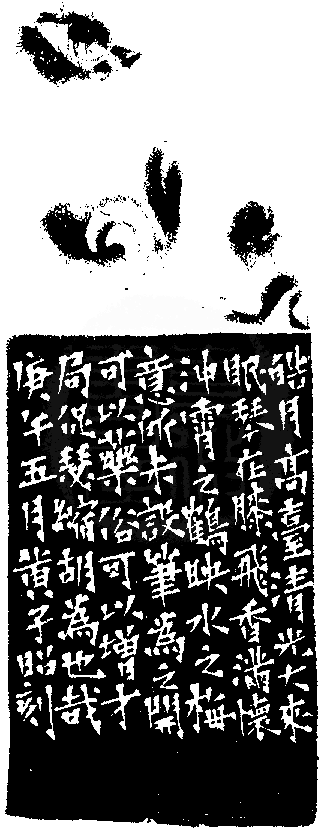 皓月高臺清光大來
眠琴在膝飛香滿懷
沖霄之鶴映水之梅
意所未設筆為之開
可以藥俗可以增才
局促瑟縮胡為也哉
庚午五月黃子昭刻